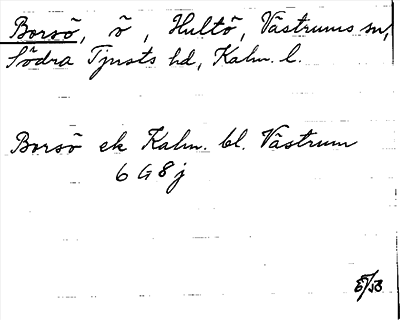 Borsö, ö, Hultö, Västrums sn,
Södra Tjusts hd, Kalm. l.
Borsö ek Kalm. bl. Västrum
6 G 8 j